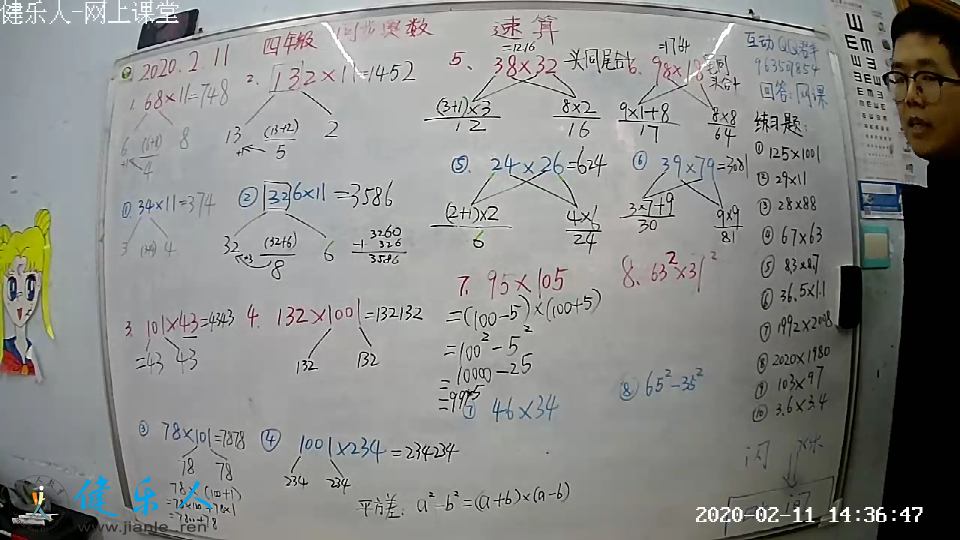 健乐人-网上课堂
2020.2.11
四年级 同步奥数 速算
互动QQ
963501854
回答:网课
1. 68×11=748
6 (6+8) 8
+1 4
2. 132×11=1452
13 (13+2) 2
+1 5
5. 38×32
=1216
头同尾合十
(3+1)×3
12
8×2
16
98×18
=1764
9×1+8
17
8×8
64
① 34×11=374
3 (3+4) 4
② 326×11=3586
32 (32+6) 6
+3 8
3260
326
3586
⑤. 24×26=624
(2+1)×2
6
4×6
24
⑥ 39×79=3081
3×7+9
30
9×9
81
3. 101×43=4343
=43 43
4. 132×1001=132132
132 132
7. 95×105
=(100-5)×(100+5)
=100²-5²
=10000-25
=9975
8. 63²×31²
③ 78×101=7878
78 78
78×(100+1)
=78×100+78×1
=7800+78
④ 1001×234=234234
234 234
⑦ 46×34
⑧ 65²-35²
平方差: a²-b²=(a+b)×(a-b)
练习题:
① 125×1001
② 29×11
③ 28×88
④ 67×63
⑤ 83×87
⑥ 36.5×1.1
⑦ 1992×2008
⑧ 2020×1980
⑨ 103×97
⑩ 3.6×3.4
健乐人
www.jianle.ren
2020-02-11 14:36:47